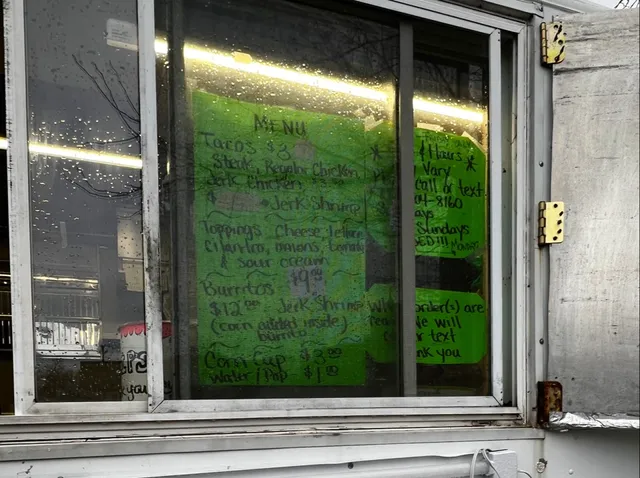 MENU
Tacos $3
Steak, Regular Chicken
Jerk Chicken,
$ Jerk Shrimp
Toppings Cheese, lettuce
cilantro, onions, tomato
sour cream
$9.99
Burritos
$12.00 Jerk Shrimp
(corn added inside)
burrito
Corn Cup $3.00
Water / Pop $1.00
* Hours *
Vary
Call or text
04-8160
ays
Sundays
SED!!!
order(s) are
We will
or text
nk you